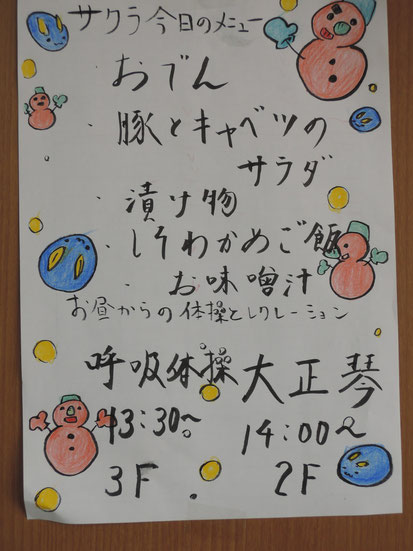 サクラ今日のメニュー
おでん
・豚とキャベツの
サラダ
・漬け物
・しそわかめご飯
・お味噌汁
お昼からの体操とレクレーション
呼吸体操 大正琴
13:30〜 14:00〜
3F. 2F